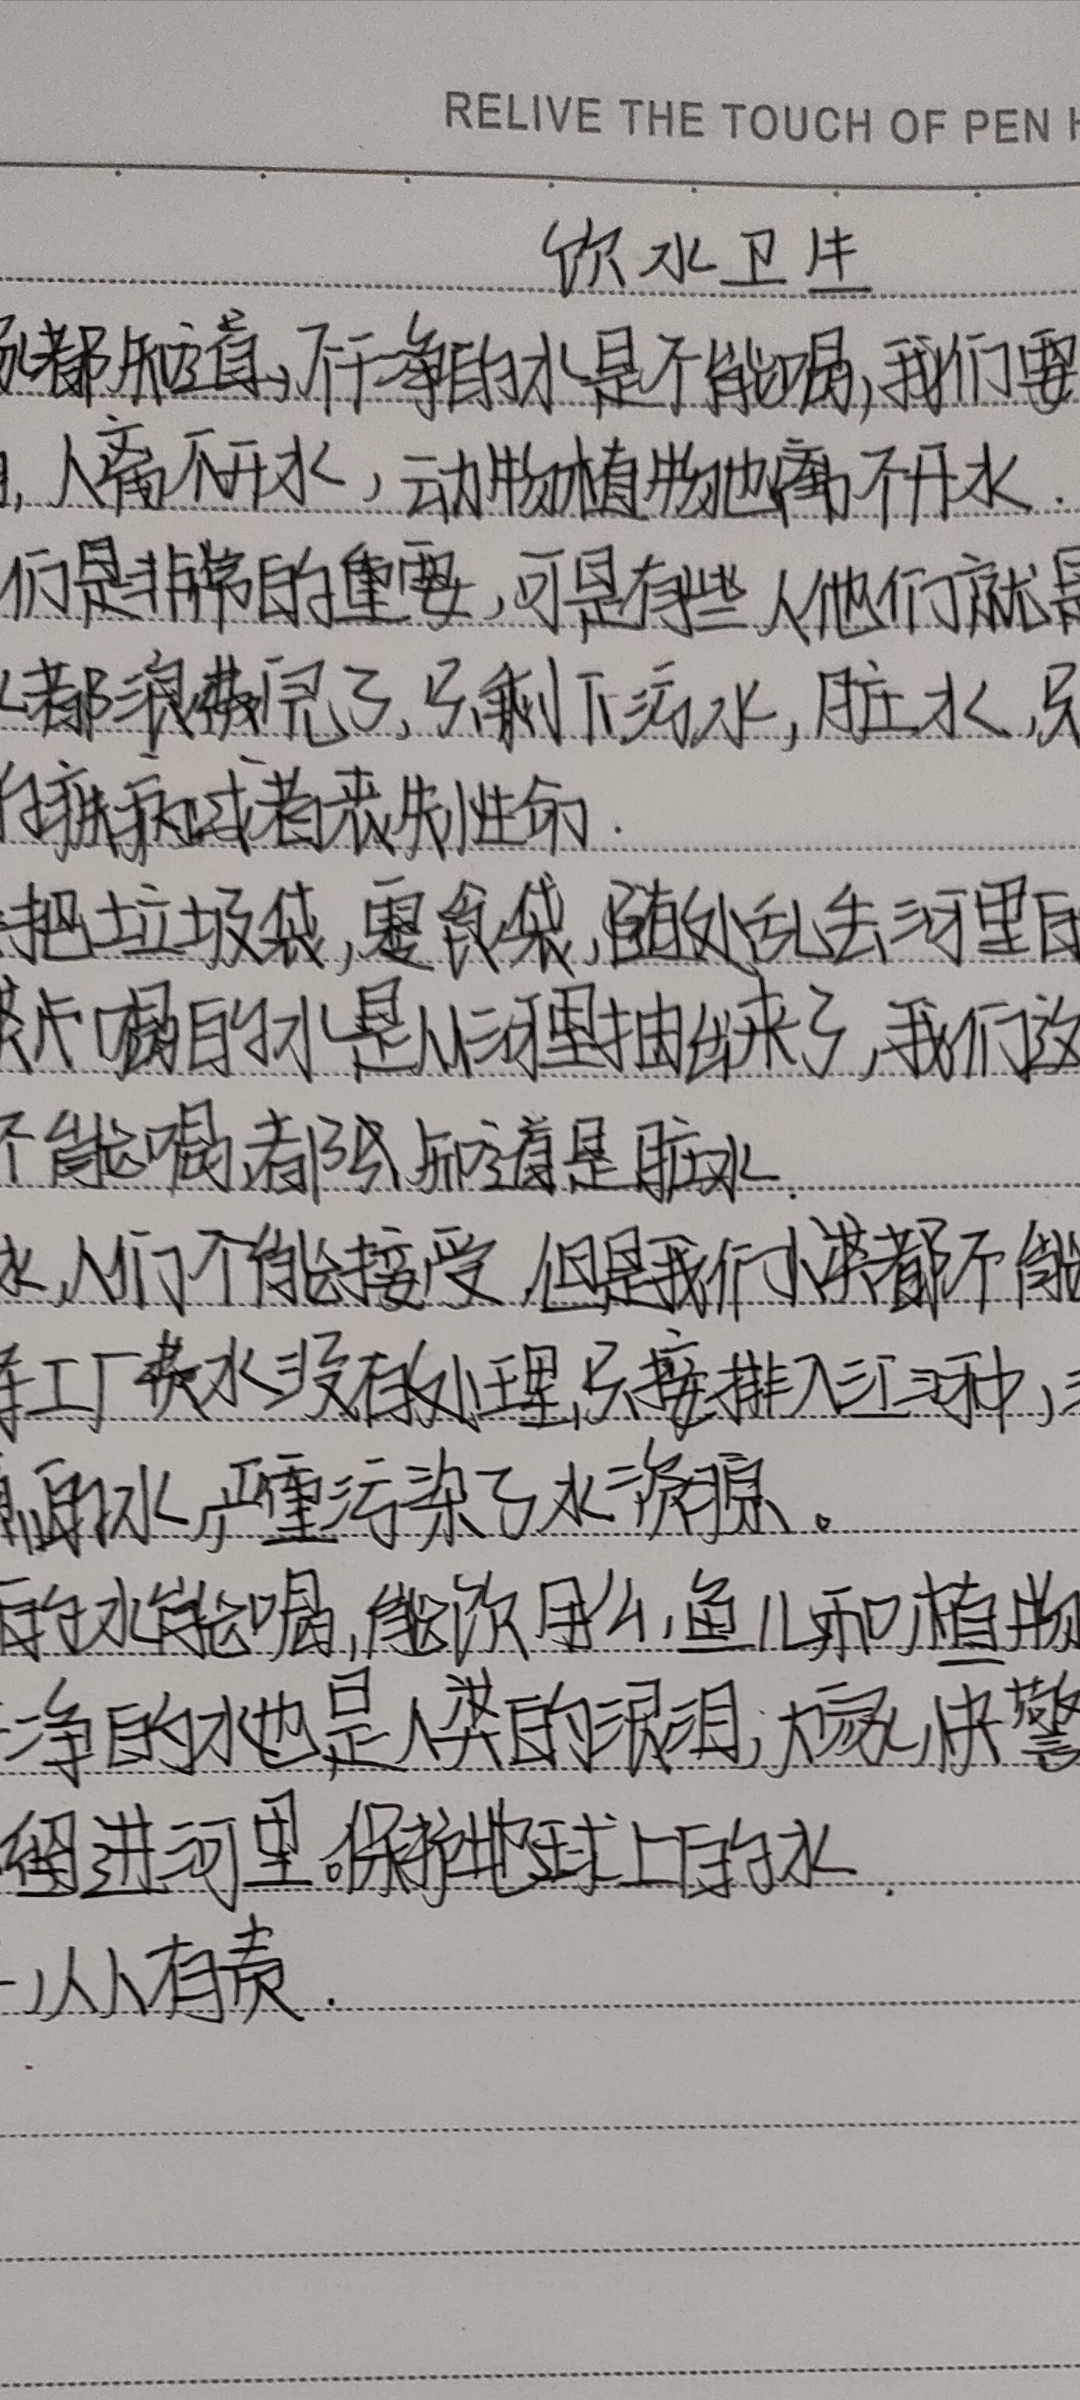 RELIVE THE TOUCH OF PEN
饮水卫生
都知道,不干净的水是不能喝,我们要
人离不开水,动物植物也离不开水.
们是非常的重要,可是有些人他们就是
都浪费完了,只剩下污水,脏水,只
的疾病或者丧失性命.
把垃圾袋,零食袋,随处乱丢河里的
喝的水是从河里抽出来了,我们这
不能喝,都知道是脏水.
水,人们不能接受,但是我们人类都不能
工厂废水没有处理,只接排入江河种,
的水,严重污染了水资源。
的水能喝,能饮用么,鱼儿和植物
净的水也是人类的眼泪,大家快警
进河里。保护地球上的水.
,人人有责.